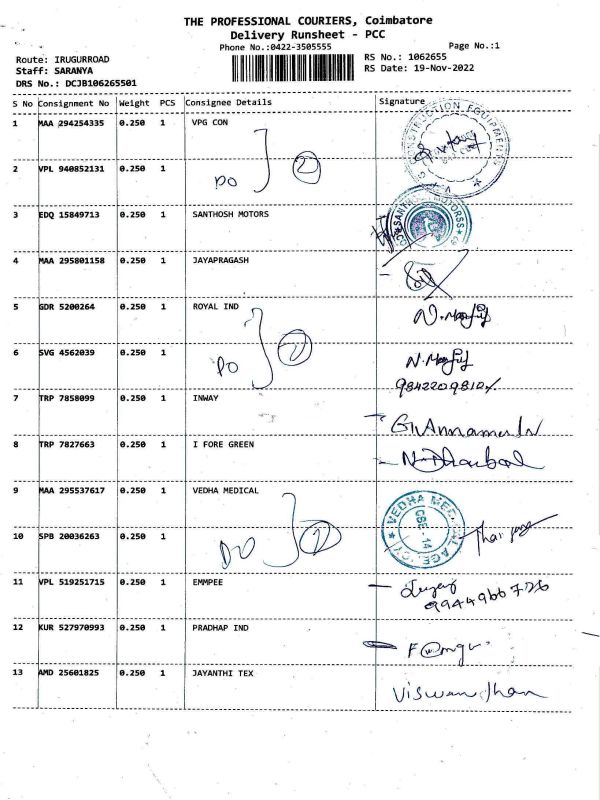 THE PROFESSIONAL COURIERS, Coimbatore
Delivery Runsheet - PCC
Phone No.:0422-3505555
Page No.:1
Route: IRUGURROAD
Staff: SARANYA
DRS No.: DCJB106265501
RS No.: 1062655
RS Date: 19-Nov-2022
S No Consignment No Weight PCS Consignee Details Signature
1 MAA 294254335 0.250 1 VPG CON
2 VPL 940852131 0.250 1 DO 2
3 EDQ 15849713 0.250 1 SANTHOSH MOTORS
4 MAA 295801158 0.250 1 JAYAPRAGASH
5 GDR 5200264 0.250 1 ROYAL IND
6 SVG 4562039 0.250 1 DO 2
9842209810
7 TRP 7858099 0.250 1 INWAY
8 TRP 7827663 0.250 1 I FORE GREEN
9 MAA 295537617 0.250 1 VEDHA MEDICAL VEDHA MEDICAL AGENCY CBE-14
10 SPB 20036263 0.250 1 DO 2
11 VPL 519251715 0.250 1 EMMPEE
12 KUR 527970993 0.250 1 PRADHAP IND
13 AMD 25601825 0.250 1 JAYANTHI TEX Viswanathan